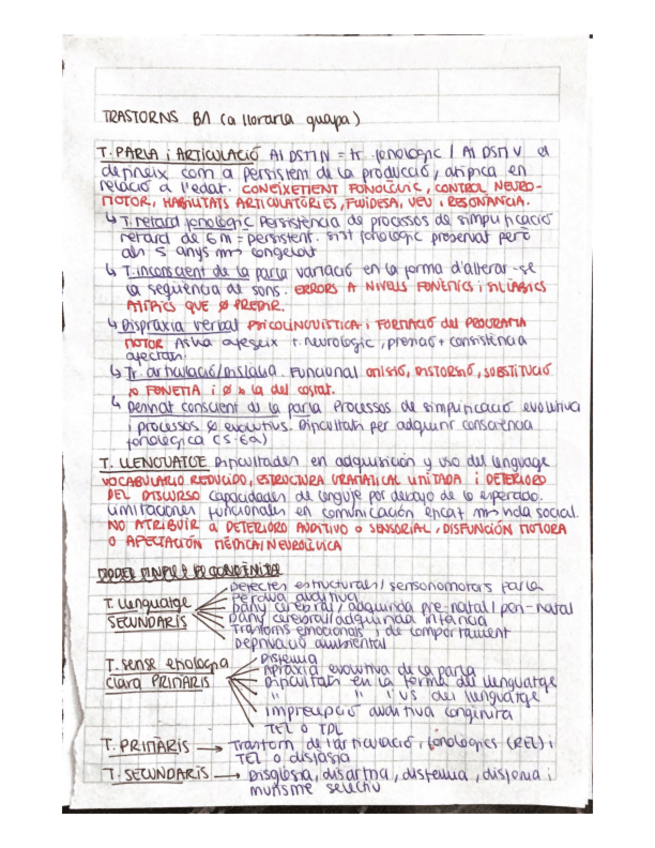 TRASTORNS B1 (a lloraria guapa)
T. PARLA i ARTICULACIÓ Al DSM IV = tr. fonològic / Al DSM V es
defineix com a persistent de la producció, atípica en
relació a l'edat. CONEIXEMENT FONOLÒGIC, CONTROL NEURO-
MOTOR, HABILITATS ARTICULATÒRIES, FLUÏDESA, VEU i RESONÀNCIA.
↳ T. retard fonològic Persistència de processos de simplificació
retard de 6m = persistent. sist fonològic preservat però
als 5 anys congelat
↳ T. inconscient de la parla variació en la forma d'alterar-se
la seqüència de sons. ERRORS A NIVELLS FONÈTICS i SIL·LÀBICS
ATÍPICS QUE Ø PREDIR.
↳ Dispraxia verbal PSICOLINGÜÍSTICA i FORMACIÓ del PROGRAMA
MOTOR Asha afegeix t. neurològic, + consistència
afectran.
↳ Tr. articulació/Dislàlia. Funcional OMISIÓ, DISTORSIÓ, SUBSTITUCIÓ
FONEMA i Ø la del costat.
↳ conscient de la parla Processos de simplificació evolutiva
i processos Ø evolutius. Dificultats per adquirir consciència
fonològica (5-6a)
T. LLENGUATGE Dificultades en adquisición y uso del lenguage
VOCABULARIO REDUCIDO, ESTRUCTURA GRAMATICAL LIMITADA i DETERIORO
DEL DISCURSO capacidades de lenguje por debajo de lo esperado.
Limitaciones funcionales en comunicación eficat vida social.
NO ATRIBUIR a DETERIORO AUDITIVO o SENSORIAL, DISFUNCIÓN MOTORA
O AFECTACIÓN MÉDICA/NEUROLÓGICA
T. Llenguatge SECUNDARIS
Defectes estructurals/sensoriomotors parla
Pèrdua auditiva
Dany cerebral/adquirida pre-natal/peri-natal
Dany cerebral/adquirida infància
Trastorns emocionals i de comportament
Deprivació ambiental
T. sense etiologia clara PRIMARIS
Disfèmia
Apraxia evolutiva de la parla
Dificultats en la forma del llenguatge
" " l'ús del llenguatge
Impercepció auditiva congènita
TEL o TDL
T. PRIMÀRIS → Trastorn de l'articulació, fonològics (REL) i
TEL o disfàsia
T. SECUNDARIS → Disglòsia, disartria, disfèmia, disfonia i
mutisme selectiu